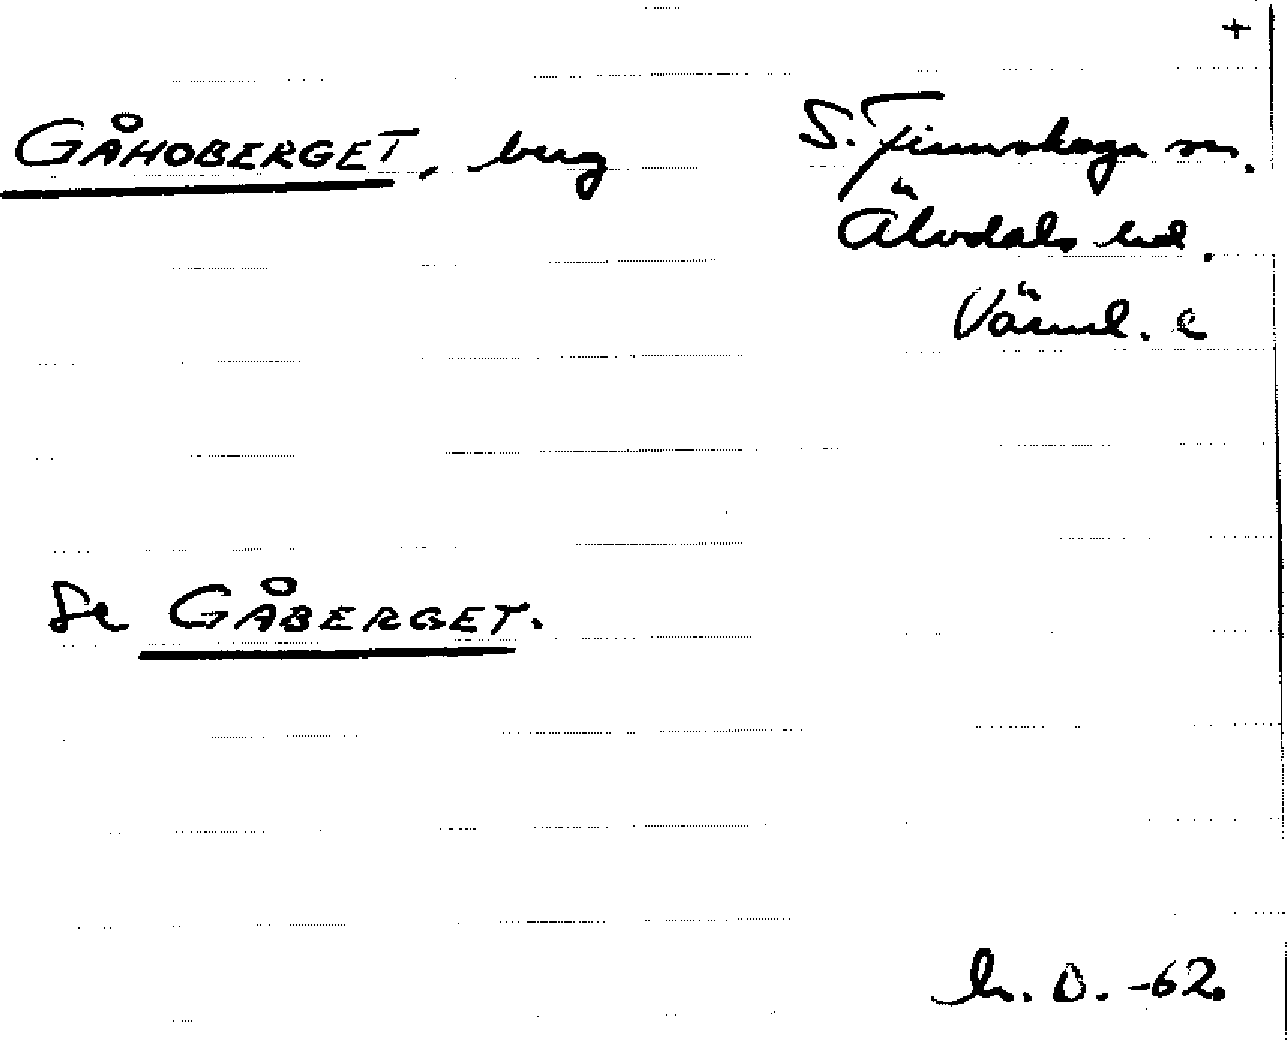 +
GÅHOBERGET, berg S. Finnskoga sn.
Älvdals hd.
Värml. l
Se GÅBERGET.
h. O. -62